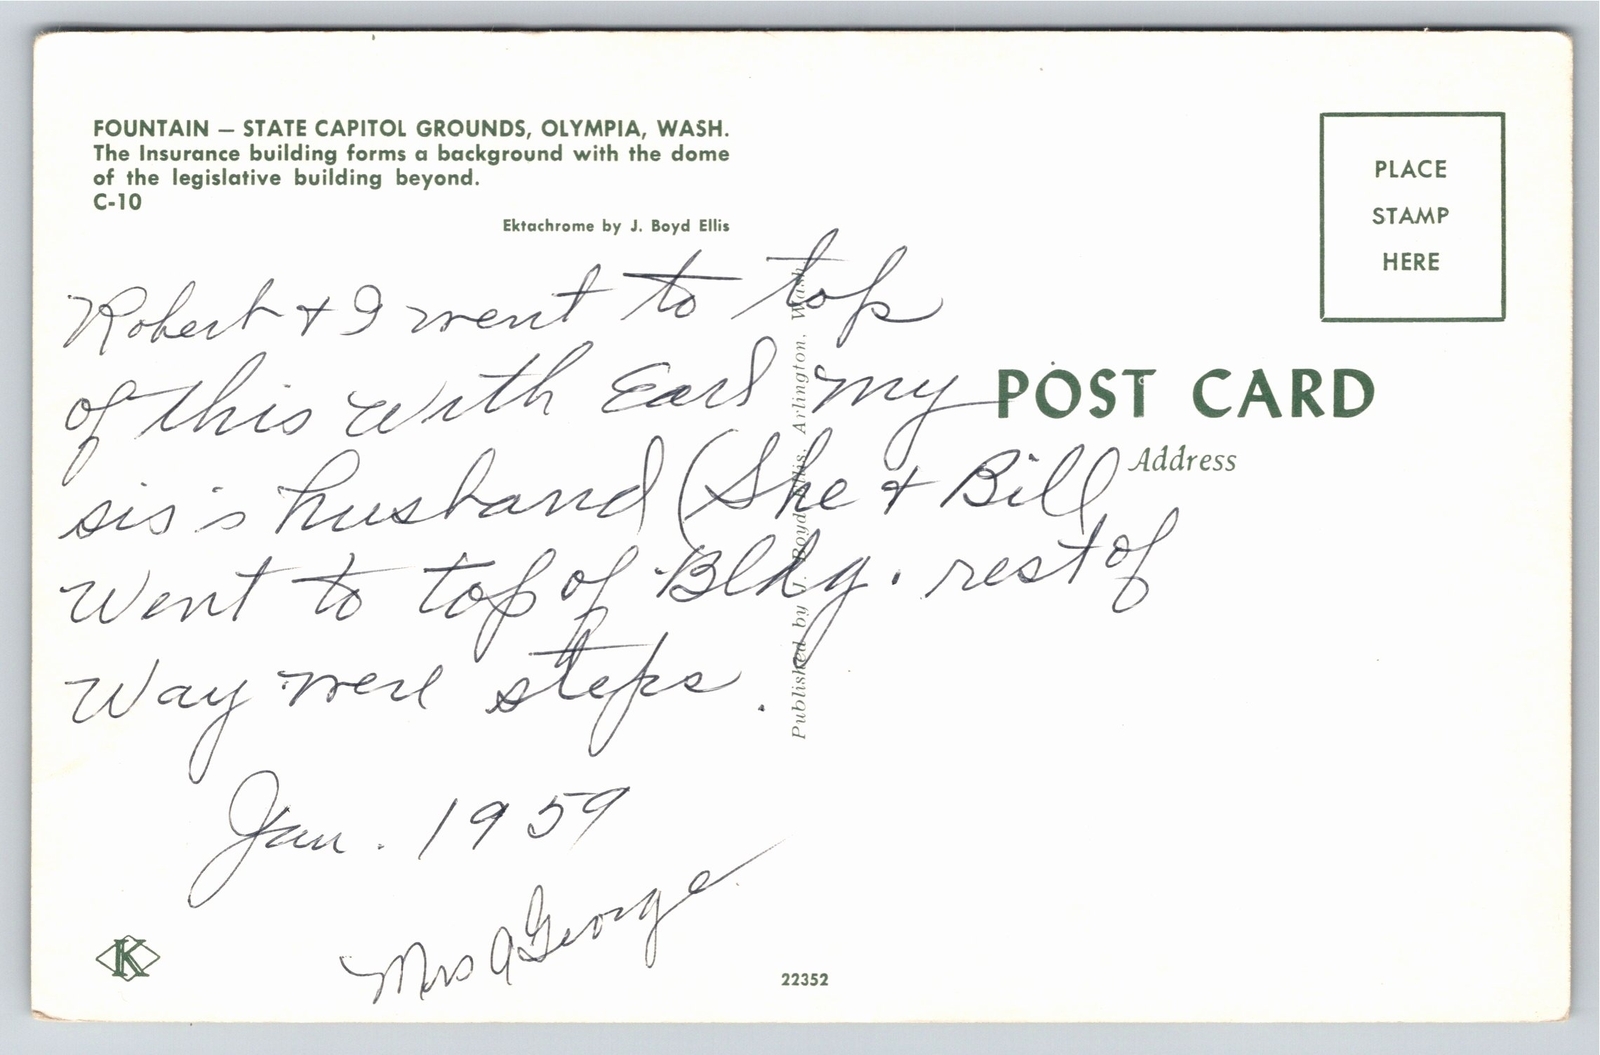 FOUNTAIN — STATE CAPITOL GROUNDS, OLYMPIA, WASH.
The Insurance building forms a background with the dome
of the legislative building beyond.
C-10
Ektachrome by J. Boyd Ellis
PLACE
STAMP
HERE
POST CARD
Address
Robert + I went to top
of this with Earl my
sis's husband (She + Bill
Went to top of Bldg. rest of
Way were steps.
Jan. 1959
Mrs A George
Published by J. Boyd Ellis, Arlington, Wash.
K
22352